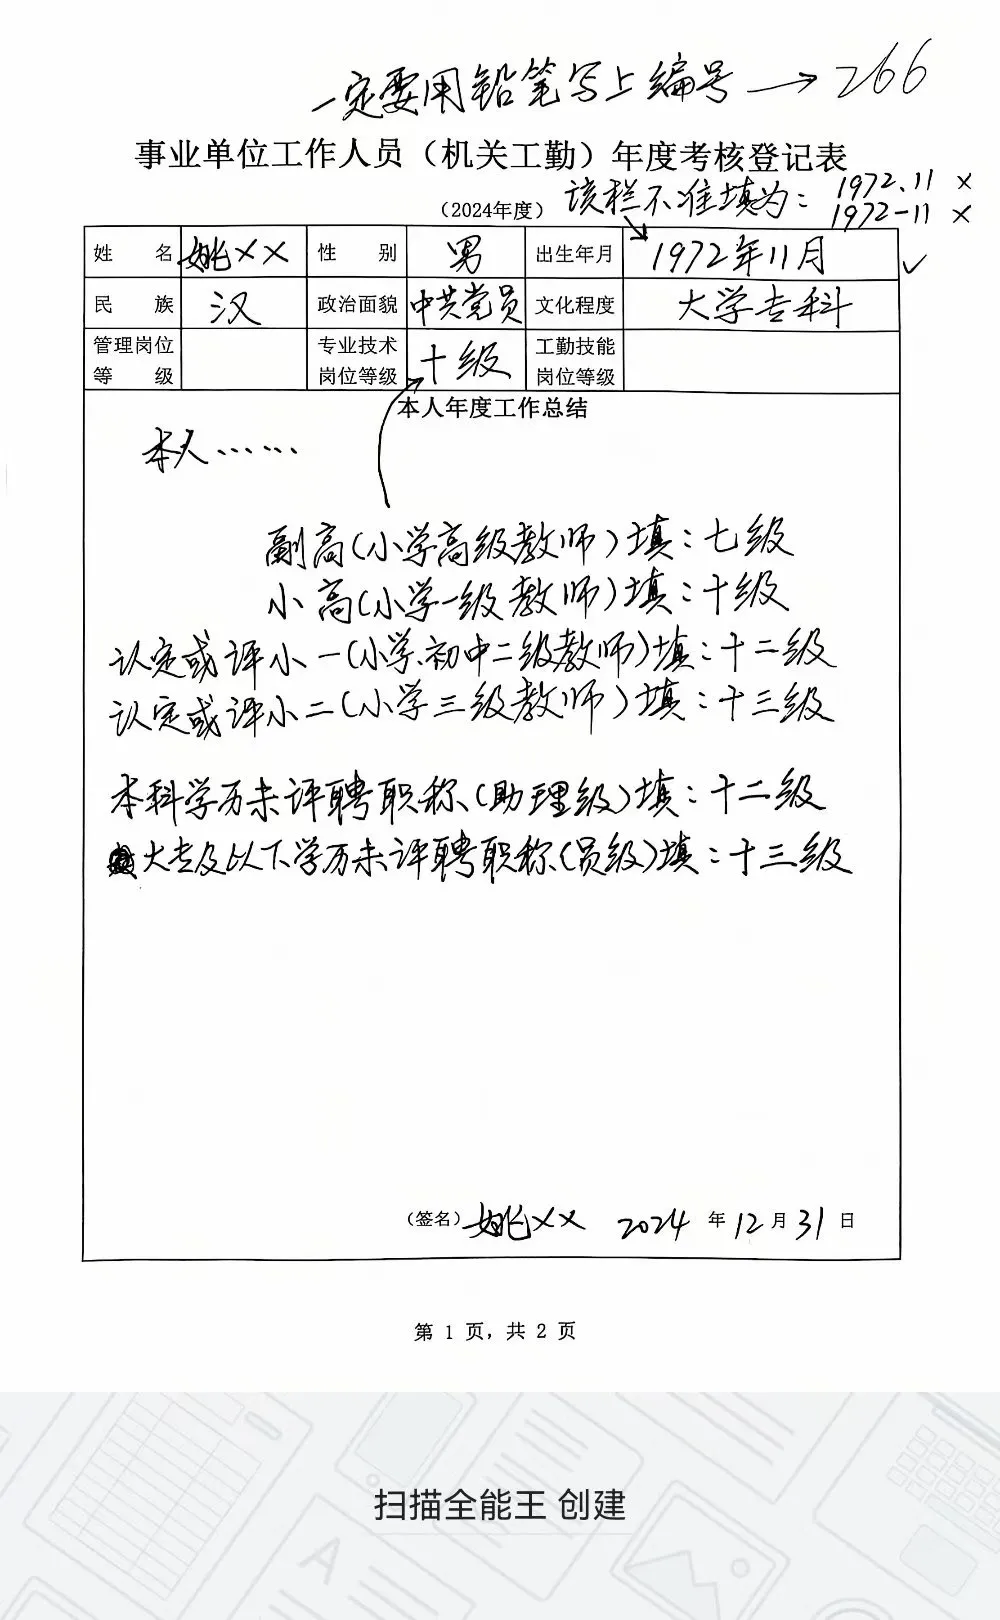 一定要用铅笔写上编号→266
事业单位工作人员（机关工勤）年度考核登记表
（2024年度）
该栏不准填为：1972.11 ×
1972-11 ×
姓 名 姚×× 性 别 男 出生年月 1972年11月 ✓
民 族 汉 政治面貌 中共党员 文化程度 大学专科
管理岗位等 级 专业技术岗位等级 十级 工勤技能岗位等级
本人年度工作总结
本人……
副高(小学高级教师)填：七级
小高(小学一级教师)填：十级
认定或评小一(小学、初中二级教师)填：十二级
认定或评小二(小学三级教师)填：十三级
本科学历未评聘职称(助理级)填：十二级
大专及以下学历未评聘职称(员级)填：十三级
（签名）姚×× 2024 年 12 月 31 日
第 1 页，共 2 页
扫描全能王 创建